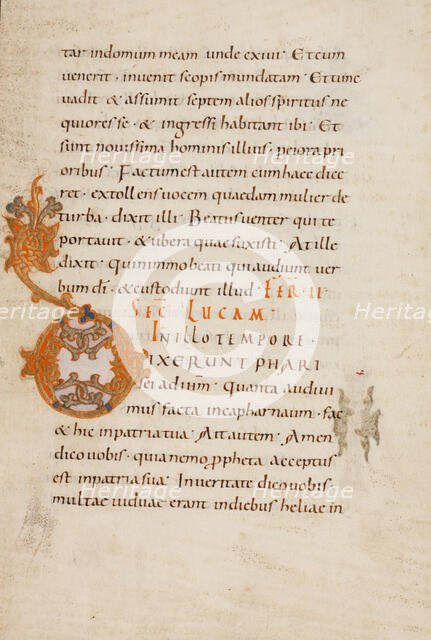 tar indomum meam unde exivi · Et cum
venerit · invenit scopis mundatam · Et tunc
vadit & assumit septem alios spiritus ne
quiores se · & ingressi habitant ibi · Et
sunt novissima hominis illius · peiora pri
oribus · Factum est autem cum haec dice
ret · extollens vocem quaedam mulier de
turba · dixit illi · Beatus venter qui te
portavit · & ubera quae suxisti · At ille
dixit · Quinimmo beati qui audiunt ver
bum di · & custodiunt illud · FER · II ·
SEC LUCAM ·
IN ILLO TEMPORE ·
DIXERUNT PHARI
sei ad ium · Quanta audivi
mus facta in capharnaum · fac
& hic in patria tua · Ait autem · Amen
dico vobis · quia nemo propheta acceptus
est in patria sua · In veritate dico vobis ·
multae viduae erant in diebus heliae in
Heritage
Heritage
Heritage
Heritage
Heritage
Heritage
Heritage
Heritage
Heritage